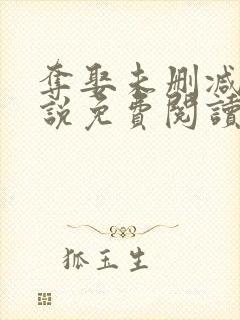 奪娶未刪減
說免費閱讀
狐玉生